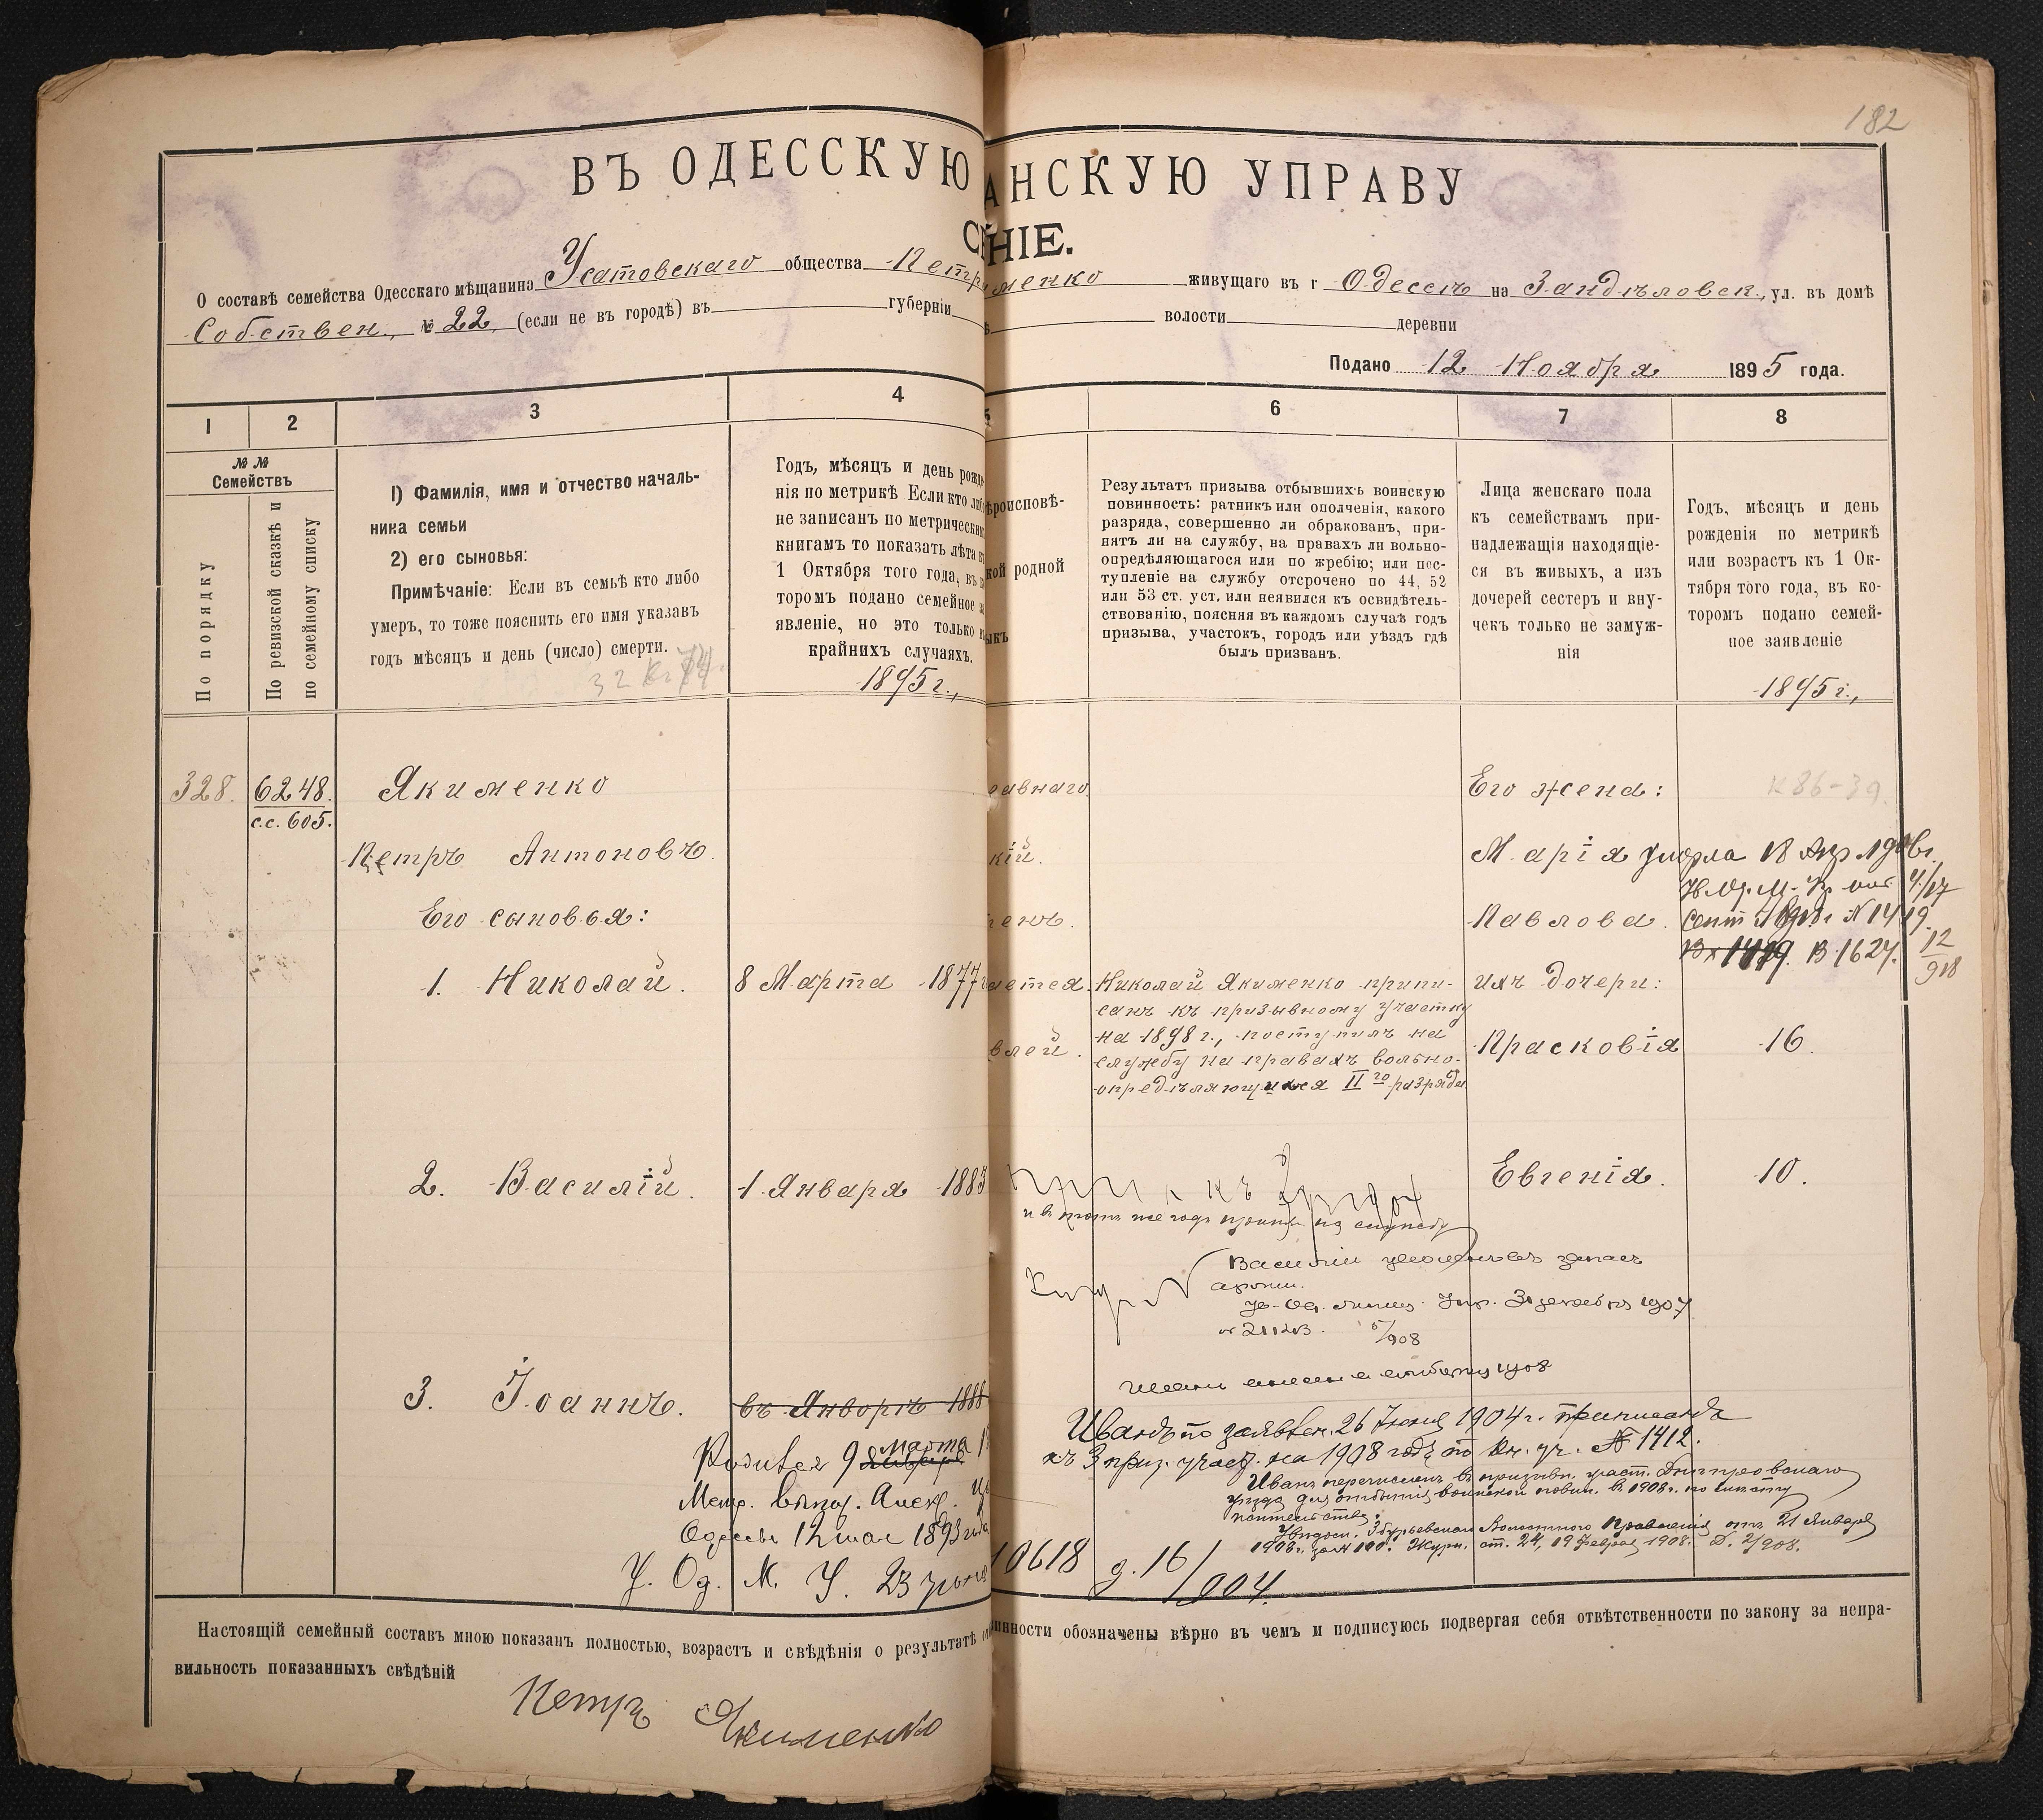 182
ВЪ ОДЕССКУЮ АНСКУЮ УПРАВУ
НІЕ.
О составѣ семейства Одесскаго мѣщанина Усатовскаго общества Петр менко живущаго въ г Одессѣ на Зандѣловск., ул. въ домѣ
Собствен., № 22, (если не въ городѣ) въ губерніи волости деревни
Подано 12 Ноября 1895 года.
1 2 3 4 5 6 7 8
№ № Семействъ
По порядку
По ревизской сказкѣ и по семейному списку
1) Фамилія, имя и отчество началь-
ника семьи
2) его сыновья:
Примѣчаніе: Если въ семьѣ кто либо
умеръ, то тоже пояснить его имя указавъ
годъ мѣсяцъ и день (число) смерти.
Годъ, мѣсяцъ и день рожде-
нія по метрикѣ Если кто либо
не записанъ по метрическимъ
книгамъ то показать лѣта къ
1 Октября того года, въ ко
торомъ подано семейное за
явленіе, но это только въ
крайнихъ случаяхъ.
1895 г.,
ѣроисповѣ-
кой родной
ыкъ
Результатъ призыва отбывшихъ воинскую
повинность: ратникъ или ополченія, какого
разряда, совершенно ли обракованъ, при-
нятъ ли на службу, на правахъ ли вольно-
опредѣляющагося или по жребію; или пос-
тупленіе на службу отсрочено по 44, 52
или 53 ст. уст. или неявился къ освидѣтель-
ствованію, поясняя въ каждомъ случаѣ годъ
призыва, участокъ, городъ или уѣздъ гдѣ
былъ призванъ.
Лица женскаго пола
къ семействамъ при-
надлежащія находящіе-
ся въ живыхъ, а изъ
дочерей сестеръ и вну-
чекъ только не замуж-
нія
Годъ, мѣсяцъ и день
рожденія по метрикѣ
или возрастъ къ 1 Ок-
тября того года, въ ко-
торомъ подано семей-
ное заявленіе
1895 г.,
328. 6248. Якименко авнаго Его жена:
с.с. 605.
Петръ Антоновъ. кій. Марія умерла 18 Апр
Его сыновья: енъ. Павлова. Сент № 1419.
1419. В 1627. 12/918
1. Николай. 8 Марта 1877 ается. Николай Якименко припи- ихъ дочери:
санъ къ призывному участку
на 1898 г., поступилъ на
влей. службу на правахъ вольно- Прасковія 16.
опредѣляющихся II го разряда
2. Василій. 1 Января 1883 Евгенія. 10.
и въ томъ же году принятъ на службу
Василій уволенъ въ запасъ
арміи.
Декабря 1907
№ 21123. /908
3. Іоаннъ. въ Январѣ 1888
Иванъ по заявлен. 26 Іюня 1904 г. приписанъ
къ 3 приз. участ. на 1908 годъ по Кн. уч. № 1412.
Родился 9 Января Марта
Иванъ перечисленъ въ призывн. участ. Днѣпровскаго
уѣзда для отбытія воинской повин. въ 1908 г. по мѣсту
жительства.
Метр. выпос. Алекс.
Одессы 12 мая 1893 года
Волостного Правленія отъ 21 Января
1908 г. за № 100. Журн. ст. 24, 19 Февраля 1908. Д. 2/908.
У. Од. М. У. 23 10618 д. 16/904.
Настоящій семейный составъ мною показанъ полностью, возрастъ и свѣдѣнія о результатѣ инности обозначены вѣрно въ чемъ и подписуюсь подвергая себя отвѣтственности по закону за непра-
вильность показанныхъ свѣдѣній
Петръ Якименко